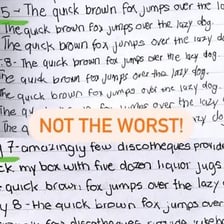 5- The quick brown fox jumps over the l
The quick brown fox jumps over the lazy dog.
The quick brown fox jumps over the lazy d
8- The quick brown fox jumps over the lazy dog.
The quick brown fox jumps over the lazy dog.
The quick brown fox jumps over the lazy dog.
The quick over the lazy
The q
NOT THE WORST!
7- amazingly few discotheques provide
ck my box with five dozen liquor jugs
quick brown fox jumps over the lazy do
y 8- the quick brown fox jumps over the
few discotheques provide